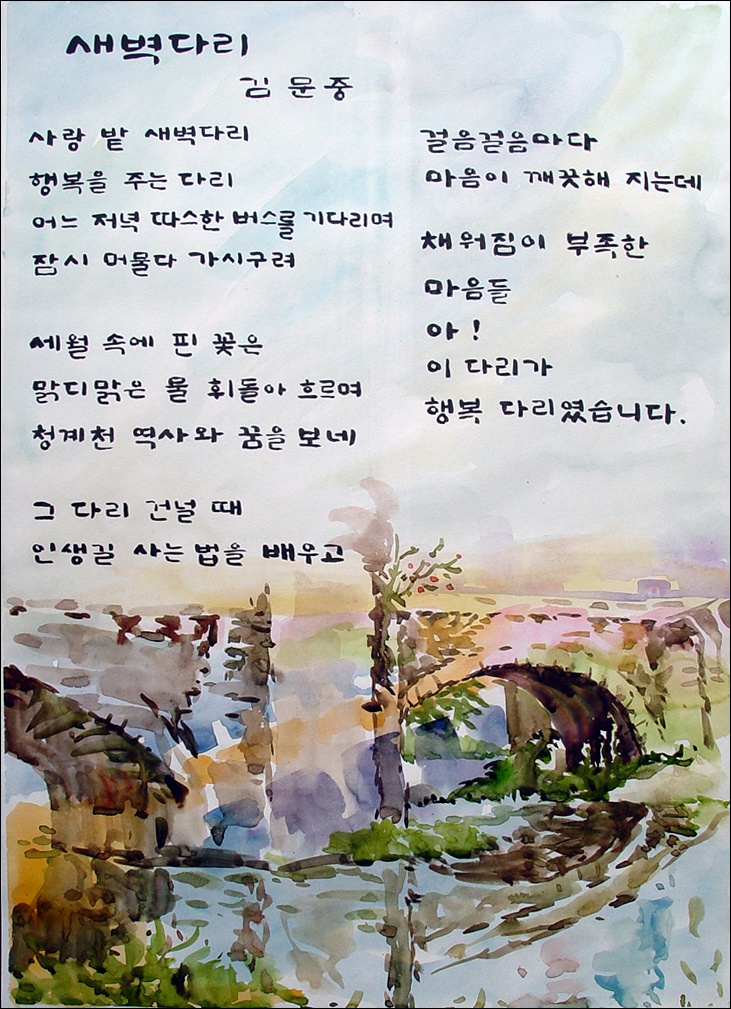 새벽다리
김문중
사랑 밭 새벽다리
행복을 주는 다리
어느 저녁 따스한 버스를 기다리며
잠시 머물다 가시구려
세월 속에 핀 꽃은
맑디맑은 물 휘돌아 흐르며
청계천 역사와 꿈을 보네
그 다리 건널 때
인생길 사는 법을 배우고
걸음걸음마다
마음이 깨끗해 지는데
채워짐이 부족한
마음들
아!
이 다리가
행복 다리였습니다.